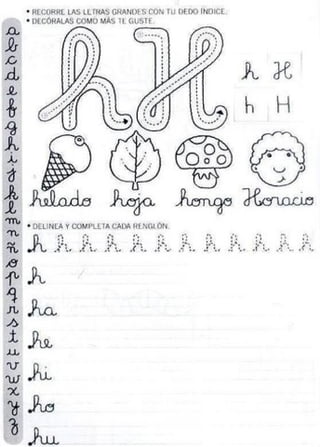 • RECORRE LAS LETRAS GRANDES CON TU DEDO ÍNDICE.
• DECÓRALAS COMO MÁS TE GUSTE.
h H
h H
h H
helado hoja hongo Horacio
• DELINEA Y COMPLETA CADA RENGLÓN.
h h h h h h h h h h h h
h
ha
he
hi
ho
hu
a
b
c
d
e
f
g
h
i
j
k
l
m
n
ñ
o
p
q
r
s
t
u
v
w
x
y
z